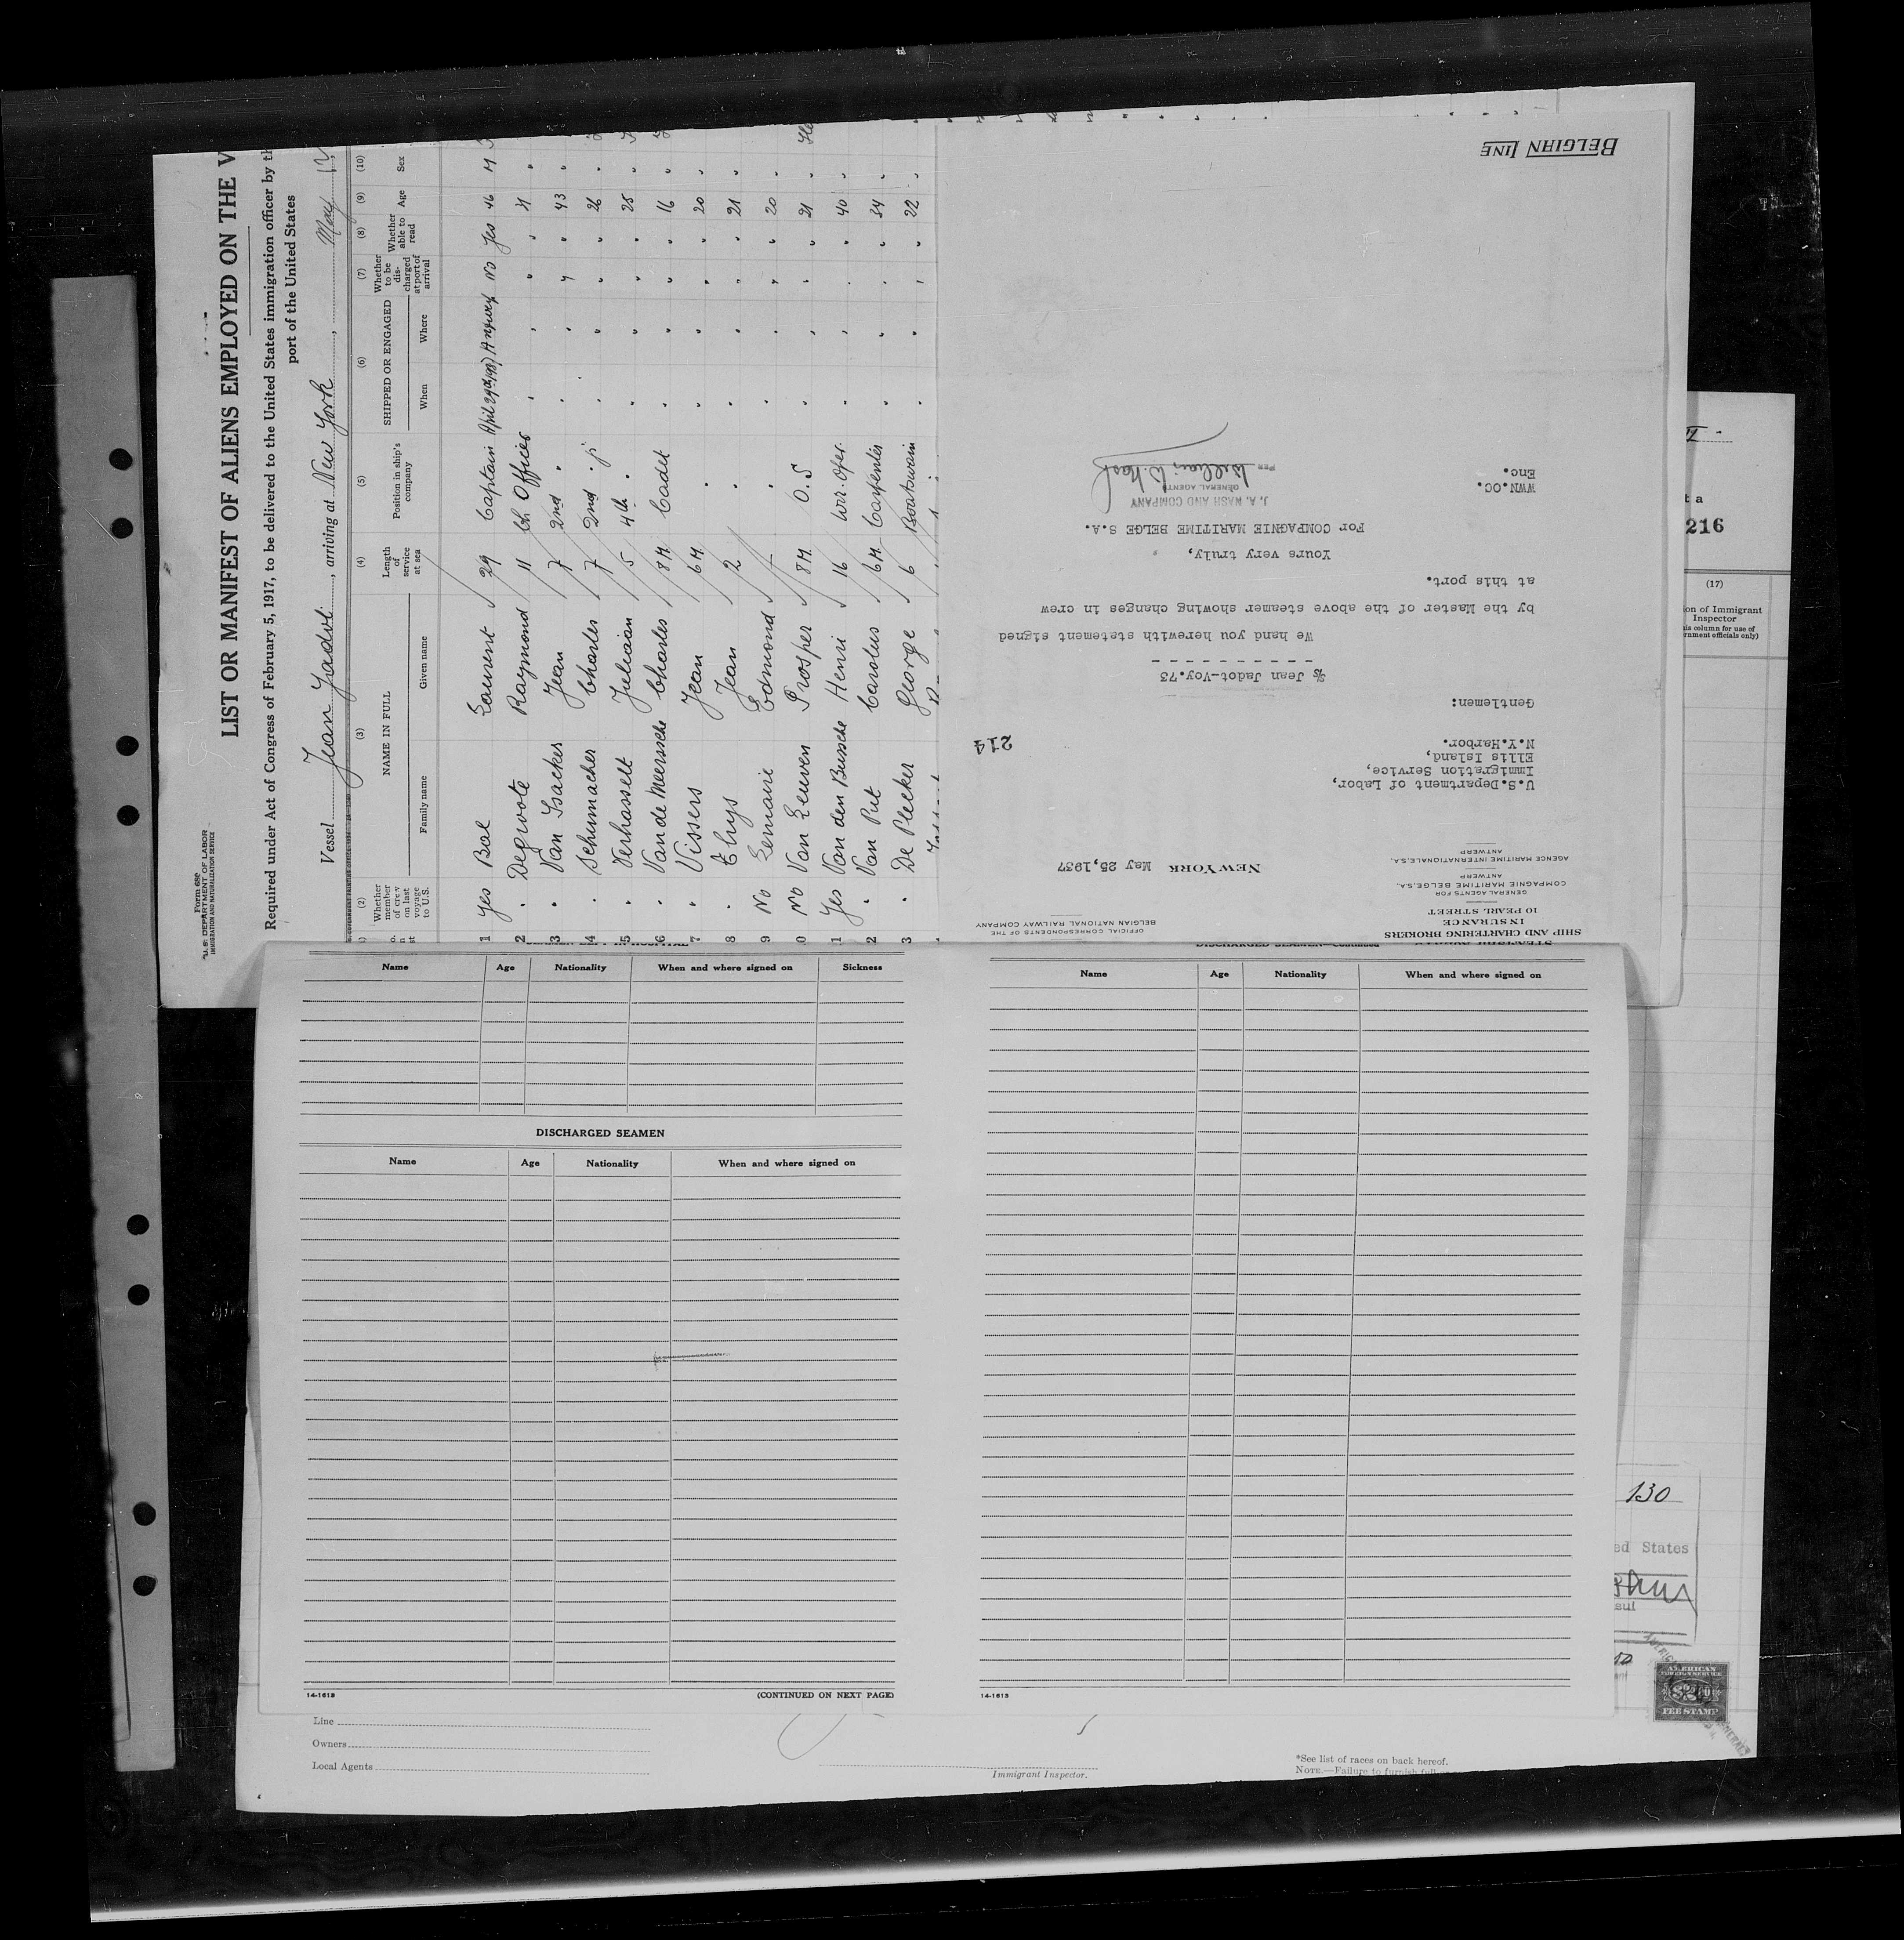 Form 680
U.S. DEPARTMENT OF LABOR
IMMIGRATION AND NATURALIZATION SERVICE
LIST OR MANIFEST OF ALIENS EMPLOYED ON THE V
Required under Act of Congress of February 5, 1917, to be delivered to the United States immigration officer by th
port of the United States
Vessel Jean Jadot, arriving at New York, May 12
(2) (3) (4) (5) (6) (7) (8) (9) (10)
Whether member of crew on last voyage to U.S. NAME IN FULL Length of service at sea Position in ship's company SHIPPED OR ENGAGED Whether to be discharged at port of arrival Whether able to read Age Sex
Family name Given name When Where
1 Yes Bal Laurent 29 Captain April 29th 1937 Antwerp No Yes 46 M
2 " Degroote Raymond 11 Ch. Officer " " " "
3 " Van Isacker Jean 7 2nd " " " " " 43 "
4 " Schumacher Charles 7 2nd " jr " " " " 26 "
5 " Verhasselt Juliaan 5 4th " " " " " 25 "
6 " Van de Meerssche Charles 8 M Cadet " " " " 16 "
7 " Vissers Jean 6 M " " " " " 20 "
8 " Thys Jean 2 " " " " " 21 "
9 No Lemaire Edmond " " " " " 20 "
0 No Van Leuven Prosper 8 M O.S " " " " 21 "
1 Yes Van den Bussche Henri 16 Wir. Oper. " " " " 40 "
2 " Van Put Carolus 6 M Carpenter " " " " 34 "
3 " De Plecker George 6 Boatswain " " " " 22 "
BELGIAN LINE
SHIP AND CHARTERING BROKERS
INSURANCE
10 PEARL STREET
GENERAL AGENTS FOR
COMPAGNIE MARITIME BELGE, S.A.
ANTWERP
AGENCE MARITIME INTERNATIONALE, S.A.
ANTWERP
OFFICIAL CORRESPONDENTS OF THE
BELGIAN NATIONAL RAILWAY COMPANY
NEW YORK May 25,1937
U.S.Department of Labor,
Immigration Service,
Ellis Island,
N.Y.Harbor.
214
Gentlemen:
S/S Jean Jadot-Voy.73
We hand you herewith statement signed
by the Master of the above steamer showing changes in crew
at this port.
Yours very truly,
For COMPAGNIE MARITIME BELGE S.A.
J. A. NASH AND COMPANY
GENERAL AGENTS
PER William W. Nash
WWN.OC.
Enc.
t a
216
(17)
ion of Immigrant
Inspector
is column for use of
rnment officials only)
Name Age Nationality When and where signed on Sickness
DISCHARGED SEAMEN
Name Age Nationality When and where signed on
14-1613 (CONTINUED ON NEXT PAGE)
DISCHARGED SEAMEN—Continued
Name Age Nationality When and where signed on
14-1613
130
ed States
sul
AMERICAN
FOREIGN SERVICE
FEE STAMP
Line
Owners
Local Agents
Immigrant Inspector.
*See list of races on back hereof.
NOTE.—Failure to furnish full